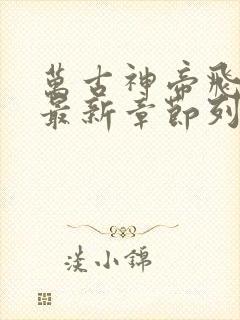 萬古神帝飛
最新章節列
淡小錦